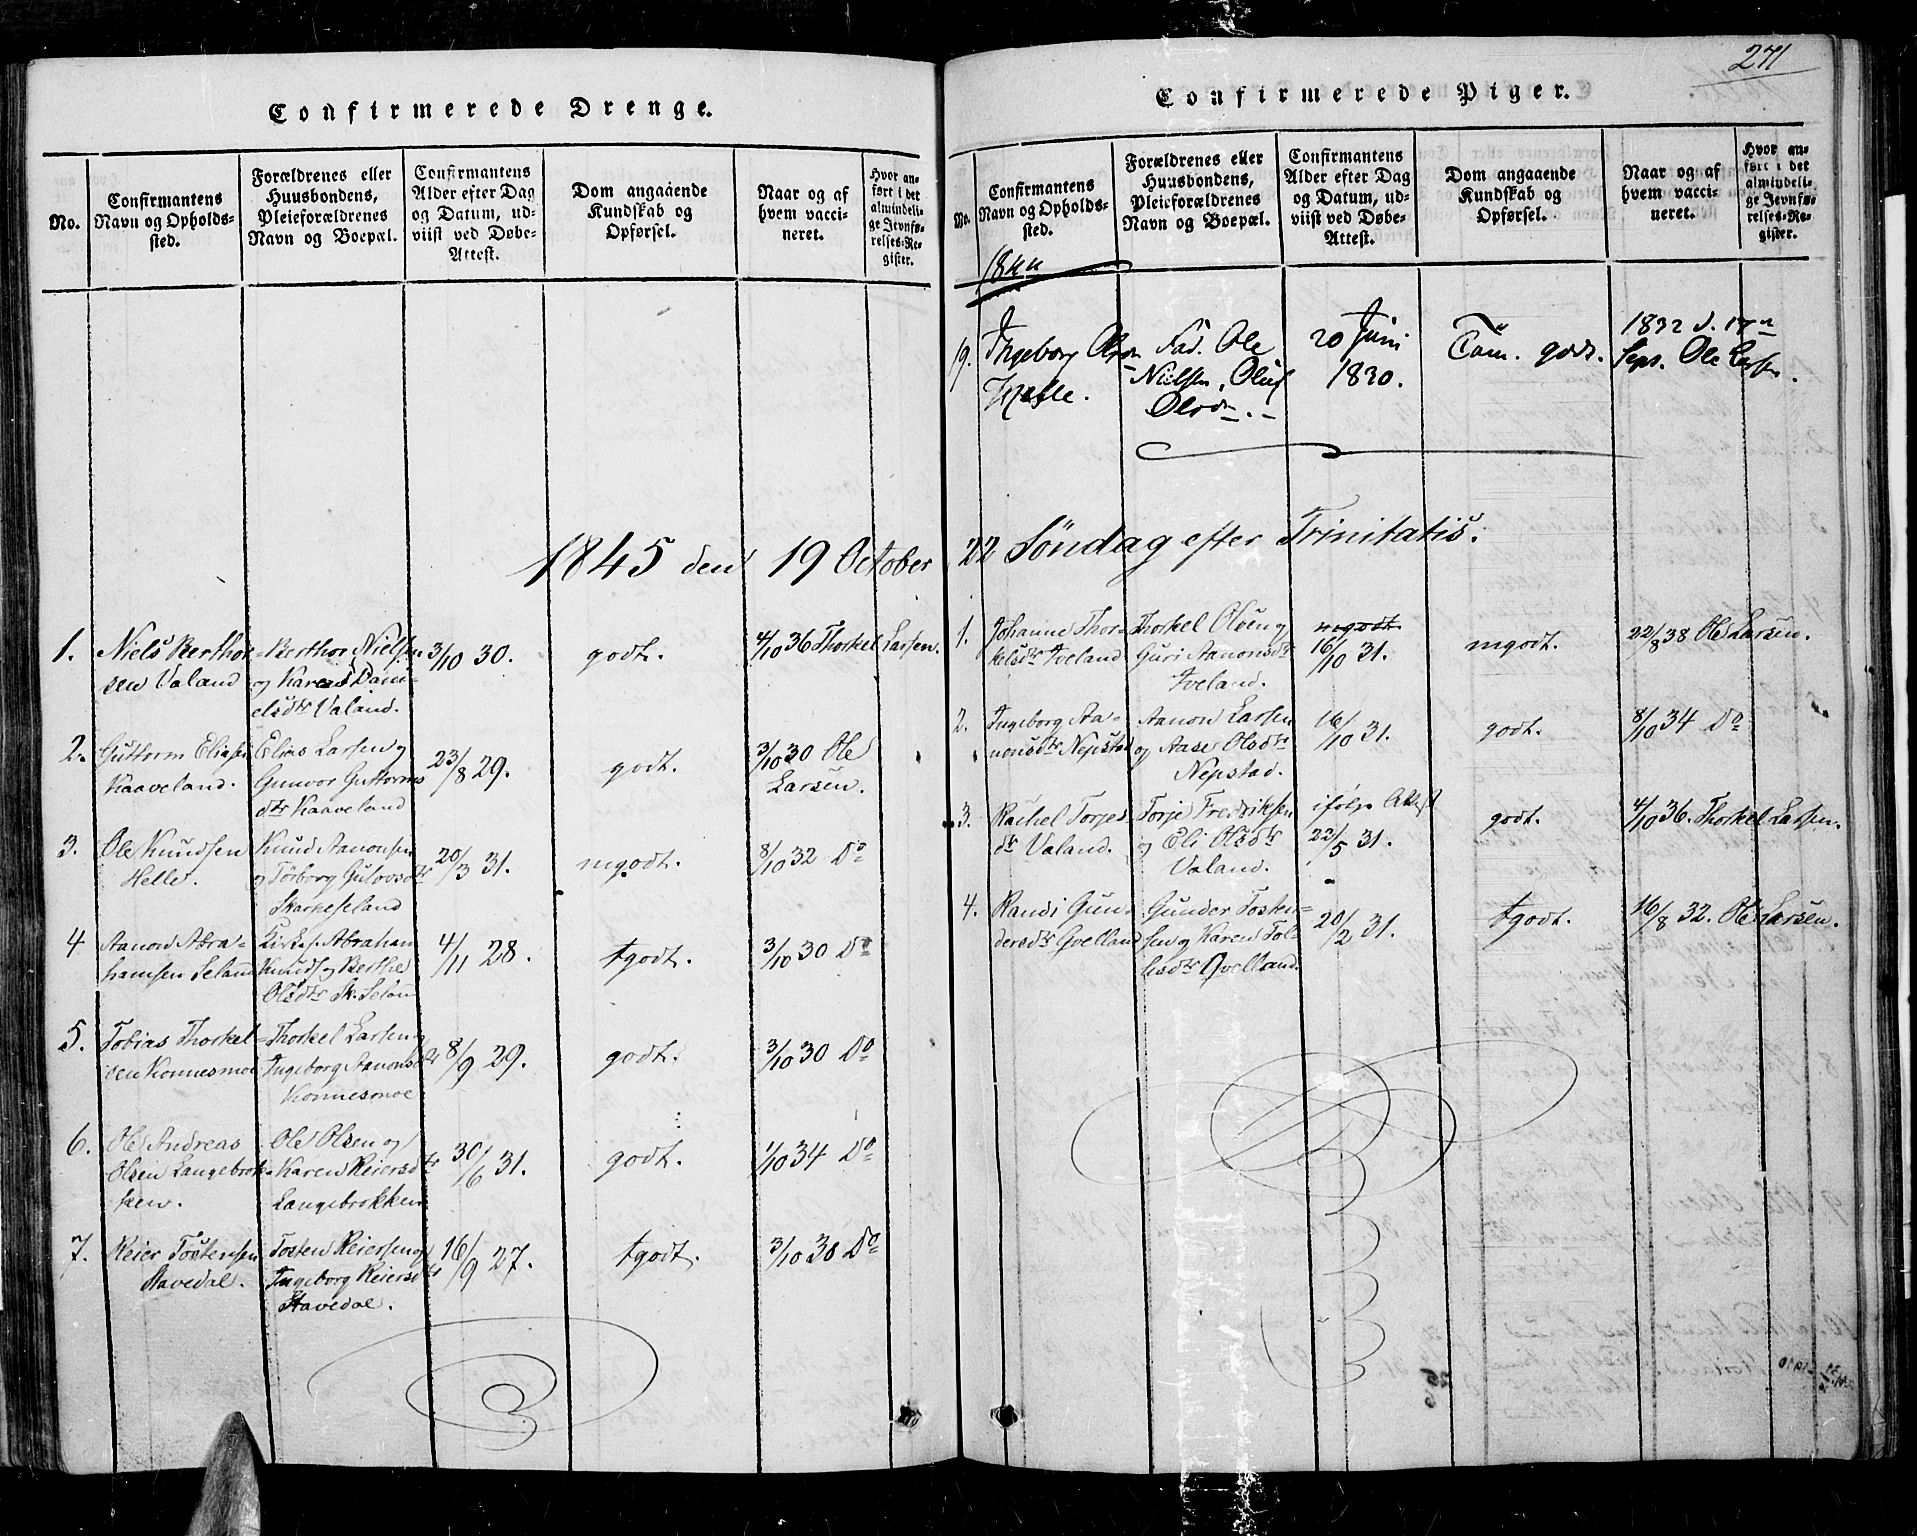 Confirmerede Drenge.
No.
Confirmantens
Navn og Opholds-
sted.
Forældrenes eller
Huusbondens,
Pleieforældrenes
Navn og Boepæl.
Confirmantens
Alder efter Dag
og Datum, ud-
viist ved Døbe-
Attest.
Dom angaaende
Kundskab og
Opførsel.
Naar og af
hvem vacci-
neret.
Hvor an-
ført i det
almindeli-
ge Jevnfø-
relses-Re-
gister.
1845 den 19 October
1.
Niels Berthor-
sen Valand
Berthor Nielsen
og Karen Dani-
elsdtr Valand.
3/10 30.
godt.
4/10 36 Thorkel Larsen.
2.
Guttorm Eliassen
Kaaveland.
Elias Larsen og
Gunvor Guttorms
dtr Kaaveland
23/8 29.
godt.
3/10 30 Ole
Larsen.
3.
Ole Knudsen
Helle.
Knud Aanonsen
og Torborg Gulovsdtr
Skarkeseland
20/3 31.
mgodt.
8/10 32 Do
4
Aanon Abra-
hamsen Seland
Kirkes. Abraham
Knuds og Berthe
Olsdtr Sk. Seland
4/11 28.
tgodt.
3/10 30 Do
5.
Tobias Thorkel-
sen Konnesmoe
Thorkel Larsen og
Ingeborg Aanonsdtr
Konnesmoe
8/9 29.
godt.
3/10 30 Do
6.
Ole Andreas
Olsen Langebrok-
ken.
Ole Olsen og
Karen Reiersdtr
Langebrokken
30/6 31.
godt.
1/10 34 Do
7.
Reier Tostensen
Stavedal.
Tosten Reiersen og
Ingeborg Reiersdtr
Stavedal.
16/9 27.
tgodt.
3/10 30 Do
271
Confirmerede Piger.
No.
Confirmantens
Navn og Opholds-
sted.
Forældrenes eller
Huusbondens,
Pleieforældrenes
Navn og Boepæl.
Confirmantens
Alder efter Dag
og Datum, ud-
viist ved Døbe-
Attest.
Dom angaaende
Kundskab og
Opførsel.
Naar og af
hvem vacci-
neret.
Hvor an-
ført i det
almindeli-
ge Jevnfø-
relses-Re-
gister.
1844
19.
Ingeborg Olsdn
Helle.
Fad. Ole
Nielsen,
Olsdn.
20 Juni
1830.
Tem. godt.
1832 d. 17n
Sept. Ole Larsen.
22 Søndag efter Trinitatis.
1.
Johanne Thor-
kelsdtr Iveland
Thorkel Olsen og
Guri Aanonsdtr
Iveland.
mgodt
16/10 31.
mgodt.
22/8 38 Ole Larsen.
2.
Ingeborg Aa-
nonsdtr Nepstad
Aanon Larsen
og Aase Olsdtr
Nepstad.
16/10 31.
godt.
8/10 34 Do
3.
Rachel Torjes
dtr Valand.
Torje Fredriksen
og Eli Olsdtr
Valand.
ifølge Attest
22/5 31.
godt.
4/10 36. Thorkel Larsen.
4.
Randi Gun-
dersdtr Qvelland
Gunder Tosten-
sen og Karen Tol-
lisdtr Qvelland.
20/2 31.
tgodt.
16/8 32. Ole Larsen.